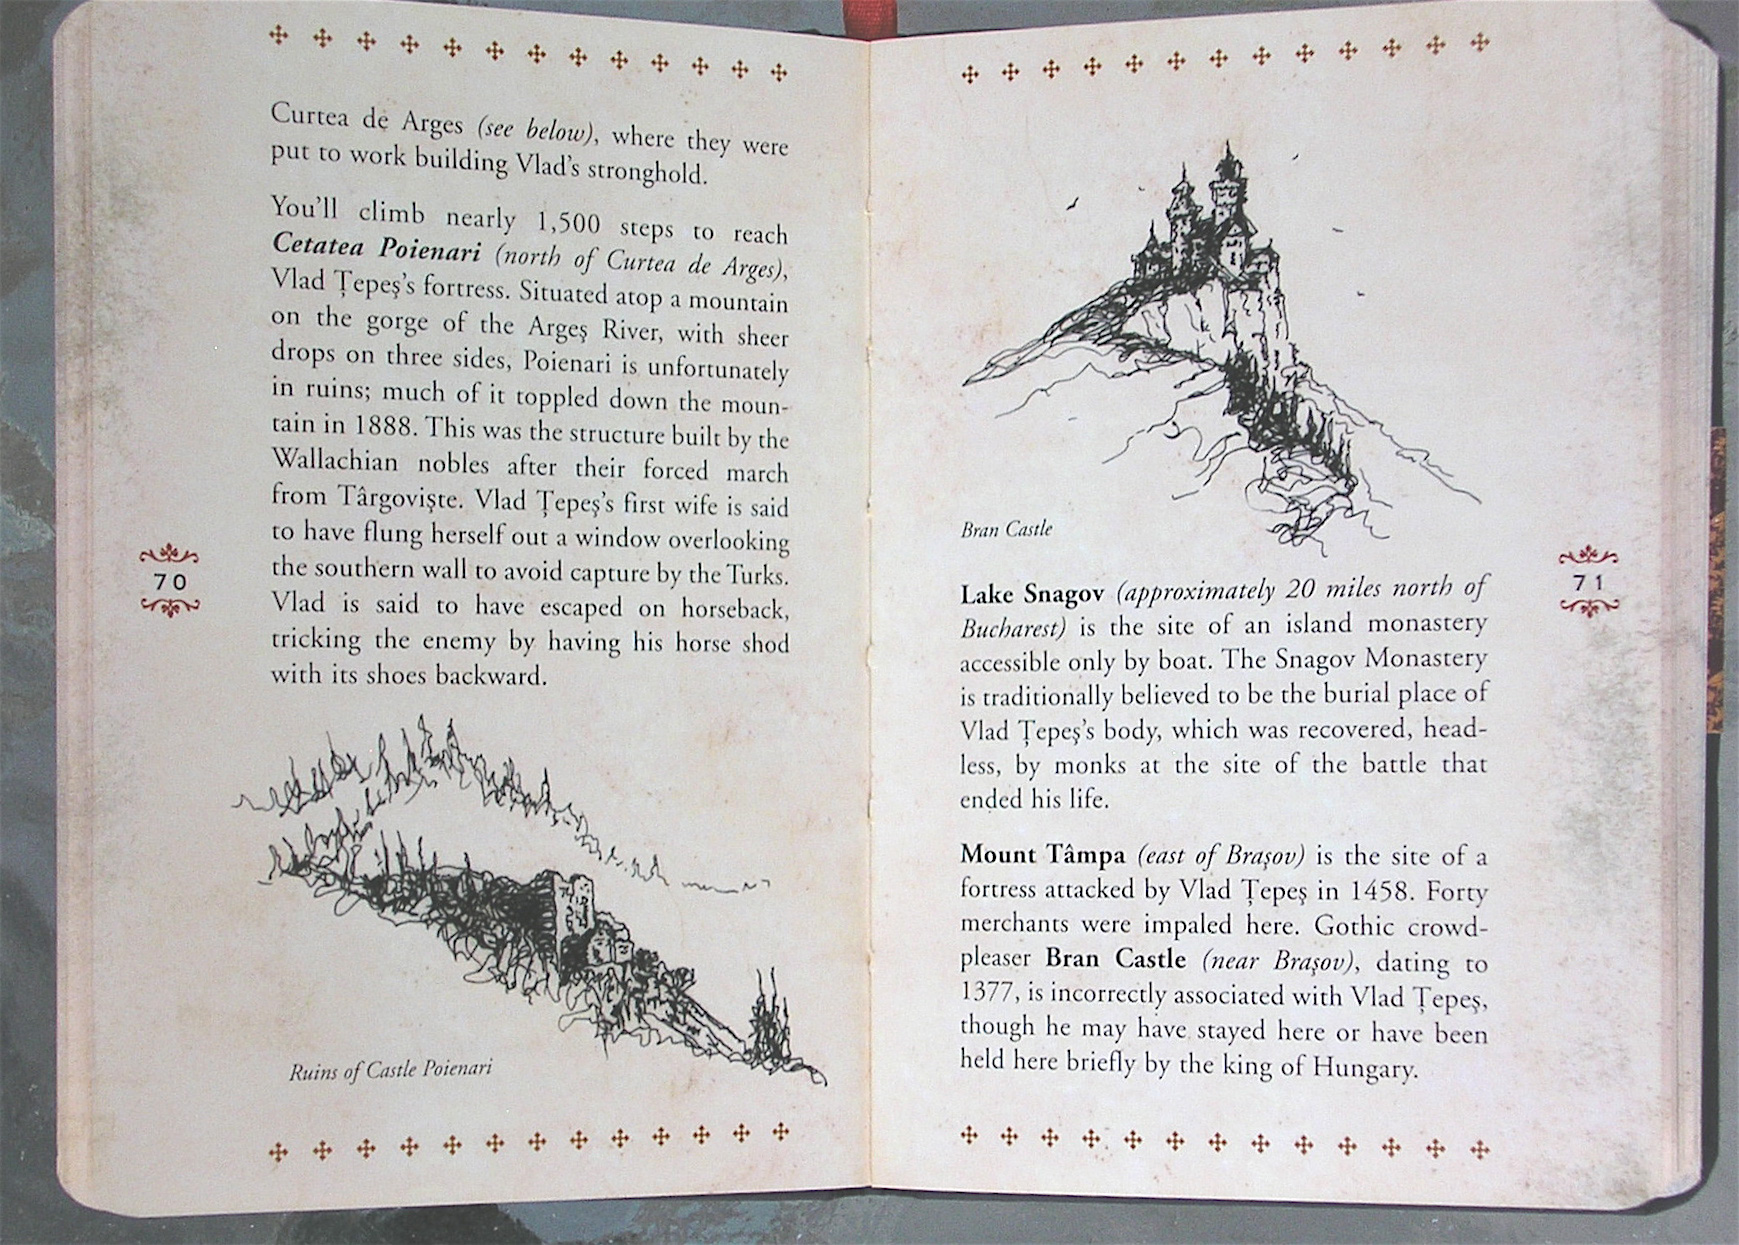 Curtea de Arges (see below), where they were
put to work building Vlad's stronghold.
You'll climb nearly 1,500 steps to reach
Cetatea Poienari (north of Curtea de Arges),
Vlad Țepeș's fortress. Situated atop a mountain
on the gorge of the Argeș River, with sheer
drops on three sides, Poienari is unfortunately
in ruins; much of it toppled down the moun-
tain in 1888. This was the structure built by the
Wallachian nobles after their forced march
from Târgoviște. Vlad Țepeș's first wife is said
to have flung herself out a window overlooking
the southern wall to avoid capture by the Turks.
Vlad is said to have escaped on horseback,
tricking the enemy by having his horse shod
with its shoes backward.
Ruins of Castle Poienari
70
Bran Castle
Lake Snagov (approximately 20 miles north of
Bucharest) is the site of an island monastery
accessible only by boat. The Snagov Monastery
is traditionally believed to be the burial place of
Vlad Țepeș's body, which was recovered, head-
less, by monks at the site of the battle that
ended his life.
Mount Tâmpa (east of Brașov) is the site of a
fortress attacked by Vlad Țepeș in 1458. Forty
merchants were impaled here. Gothic crowd-
pleaser Bran Castle (near Brașov), dating to
1377, is incorrectly associated with Vlad Țepeș,
though he may have stayed here or have been
held here briefly by the king of Hungary.
71